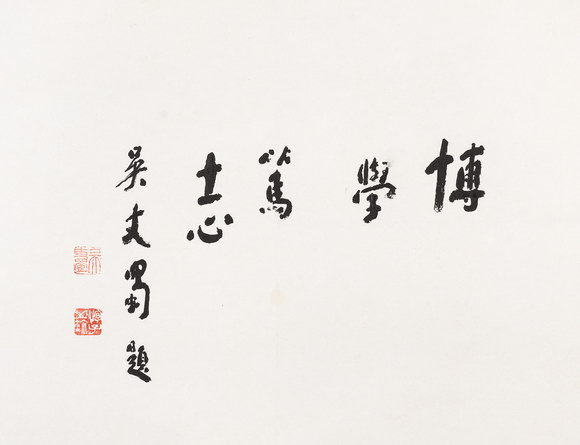 博學篤志
吳丈蜀題